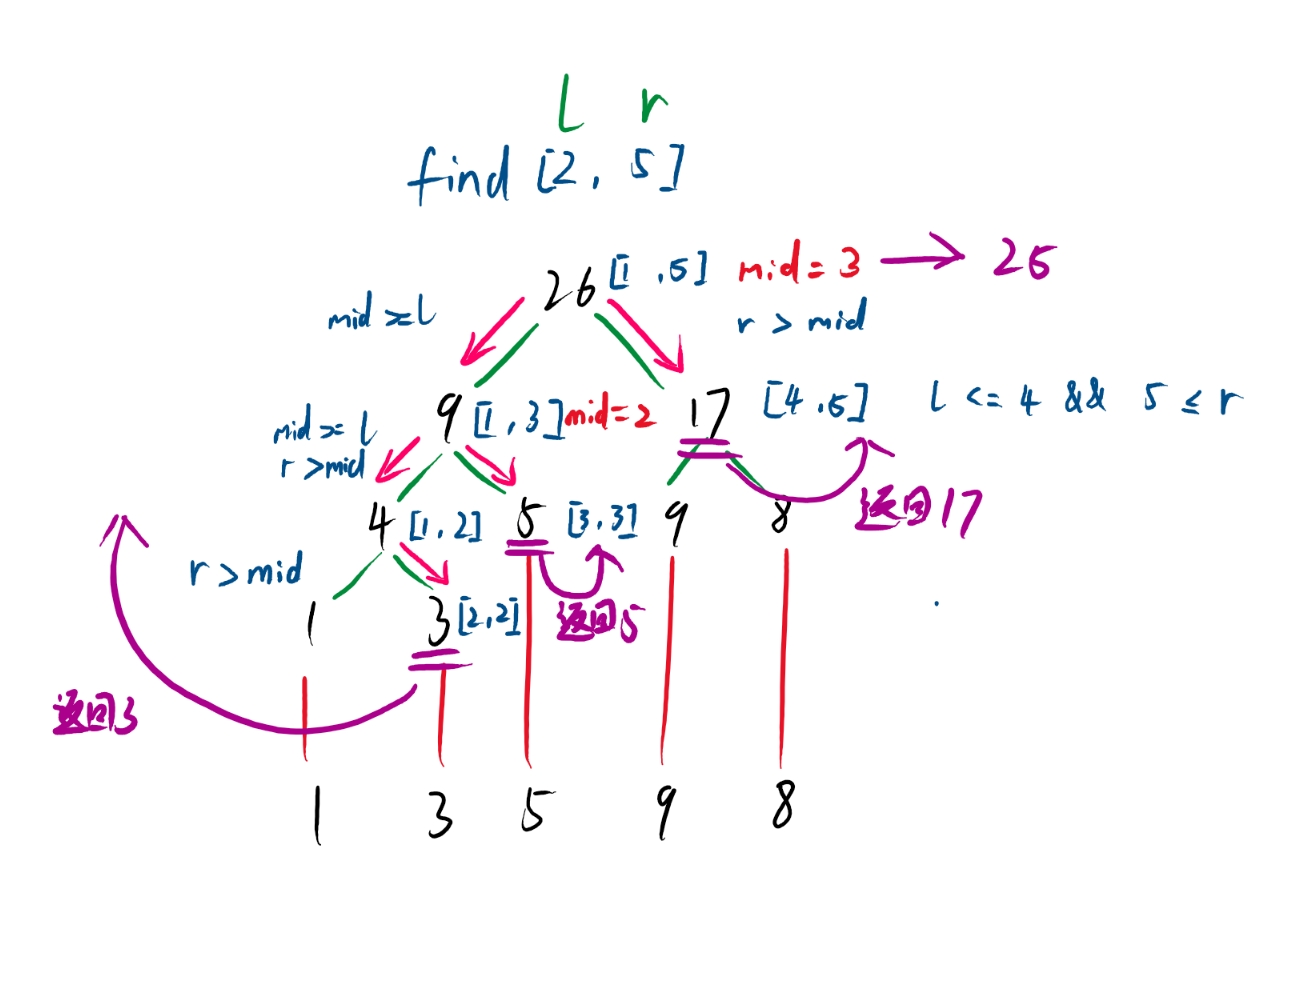 l r
find [2, 5]
26 [1, 5] mid = 3 → 25
mid >= l
r > mid
9 [1, 3] mid=2
17 [4, 5] l <= 4 && 5 ≤ r
mid >= l
r > mid
4 [1, 2]
5 [3, 3]
9
8
返回17
r > mid
1
3 [2,2]
返回5
返回3
1 3 5 9 8